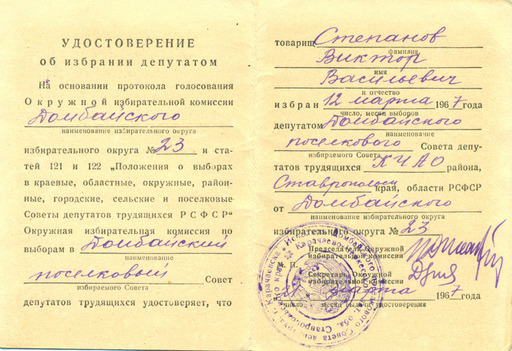 УДОСТОВЕРЕНИЕ
об избрании депутатом
На основании протокола голосования
Окружной избирательной комиссии
Домбайского
наименование избирательного округа
избирательного округа № 23 и ста-
тей 121 и 122 „Положения о выборах
в краевые, областные, окружные, район-
ные, городские, сельские и поселковые
Советы депутатов трудящихся РСФСР“
Окружная избирательная комиссия по
выборам в Домбайский
наименование
поселковый Совет
избираемого Совета
депутатов трудящихся удостоверяет, что
товарищ Степанов
фамилия
Виктор
имя
Васильевич
и отчество
избран 12 марта 1967 года
число, месяц выборов
депутатом Домбайского
наименование
поселкового Совета депу-
избираемого Совета
татов трудящихся КЧАО района,
Ставропольск края, области РСФСР
от Домбайского
наименование избирательного округа
избирательного округа № 23
Председатель Окружной
избирательной комиссии
Секретарь Окружной
избирательной комиссии
марта 1967 года
число, месяц выдачи удостоверения